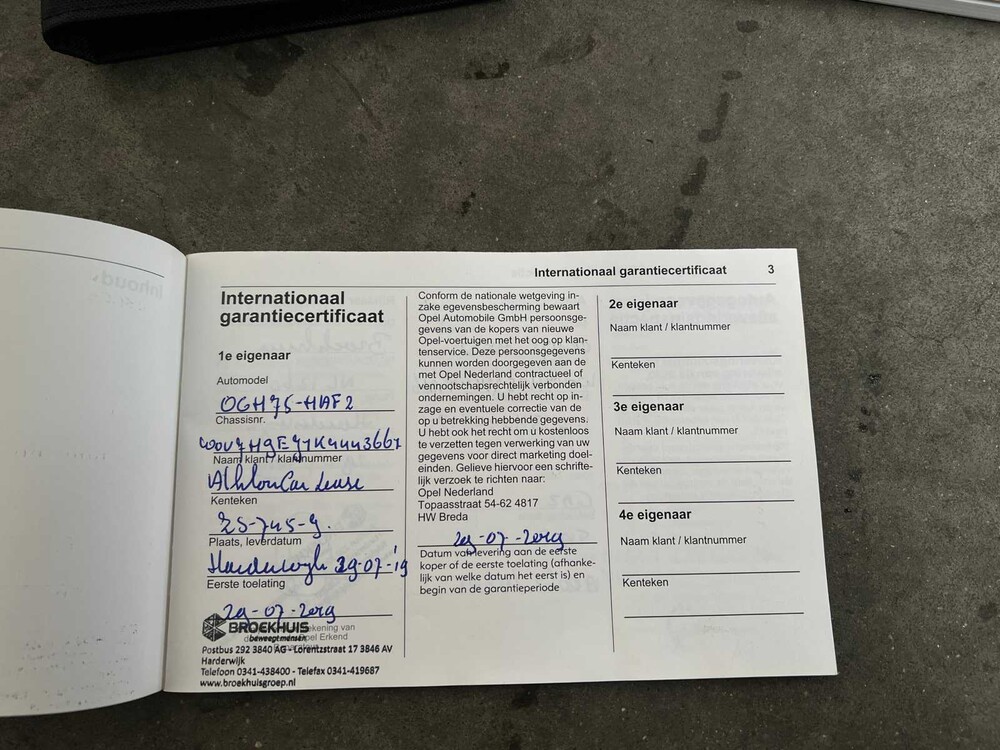 Internationaal garantiecertificaat 3
Internationaal
garantiecertificaat
1e eigenaar
Automodel
OGH75-HAF2
Chassisnr.
Naam klant / klantnummer
Athlon Car Lease
Kenteken
Plaats, leverdatum
Harderwijk 29-07-'19
Eerste toelating
29-07-2019
BROEKHUIS
beweegt mensen
ekening van
pel Erkend
Postbus 292 3840 AG - Lorentzstraat 17 3846 AV
Harderwijk
Telefoon 0341-438400 - Telefax 0341-419687
www.broekhuisgroep.nl
Conform de nationale wetgeving in-
zake egevensbescherming bewaart
Opel Automobile GmbH persoonsge-
gevens van de kopers van nieuwe
Opel-voertuigen met het oog op klan-
tenservice. Deze persoonsgegevens
kunnen worden doorgegeven aan de
met Opel Nederland contractueel of
vennootschapsrechtelijk verbonden
ondernemingen. U hebt recht op in-
zage en eventuele correctie van de
op u betrekking hebbende gegevens.
U hebt ook het recht om u kosteloos
te verzetten tegen verwerking van uw
gegevens voor direct marketing doel-
einden. Gelieve hiervoor een schrifte-
lijk verzoek te richten naar:
Opel Nederland
Topaasstraat 54-62 4817
HW Breda
29-07-2019
Datum van levering aan de eerste
koper of de eerste toelating (afhanke-
lijk van welke datum het eerst is) en
begin van de garantieperiode
2e eigenaar
Naam klant / klantnummer
Kenteken
3e eigenaar
Naam klant / klantnummer
Kenteken
4e eigenaar
Naam klant / klantnummer
Kenteken